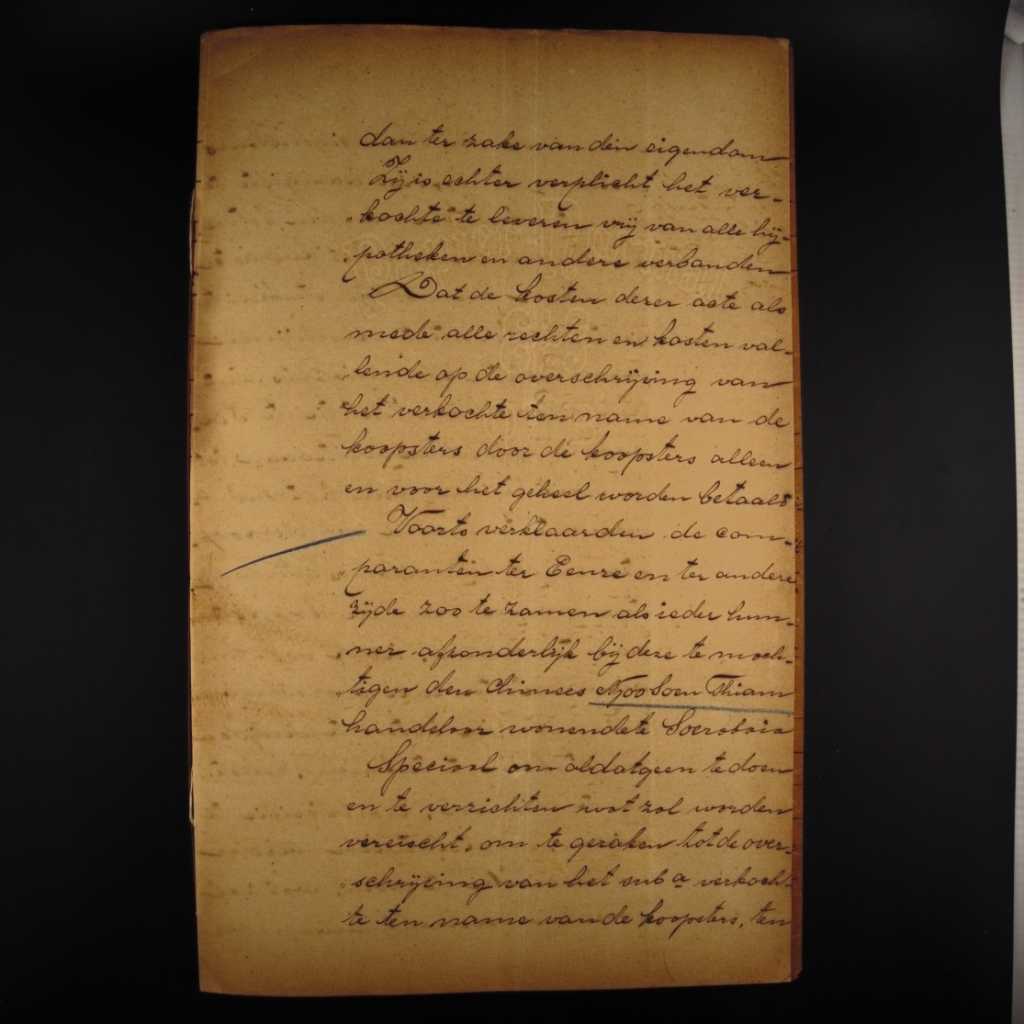 dan ter zake van den eigendom
Zij is echter verplicht het ver-
kochte te leveren vrij van alle hij-
potheken en andere verbanden
Dat de kosten dezer acte als
mede alle rechten en kosten val-
lende op de overschrijving van
het verkochte ten name van de
koopsters door de koopsters alleen
en voor het geheel worden betaald
Voorts verklaarden de com-
paranten ter Eenre en ter andere
zijde zoo te zamen als ieder hun-
ner afzonderlijk bij deze te mach-
tigen den chinees Njoo Soen Thiam
handelaar wonende te Soerabaia
Speciaal om al datgeen te doen
en te verrichten wat zal worden
vereischt, om te geraken tot de over-
schrijving van het sub a verkoch-
te ten name van de koopsters, ten